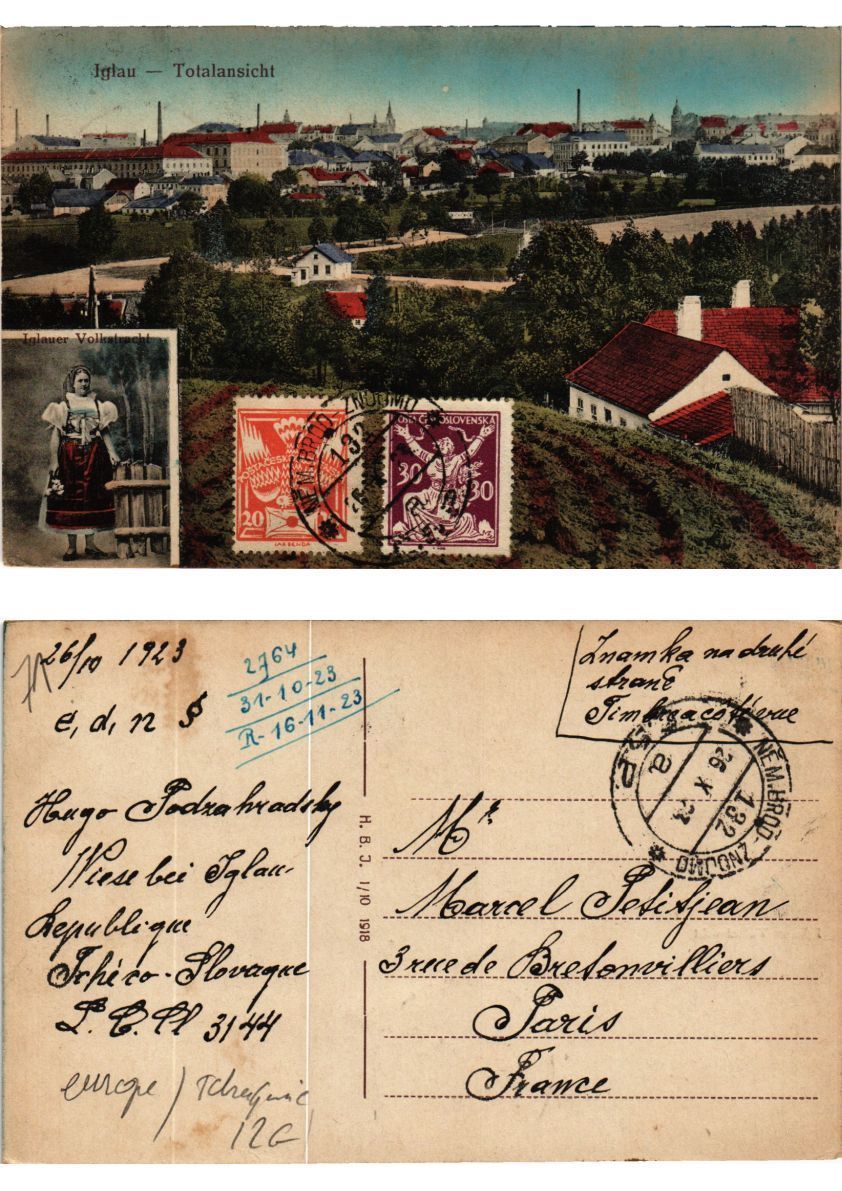 Iglau — Totalansicht
Iglauer Volkstracht
NĚM. BROD ZNOJMO
132
26 X
POSTA ČESKO
20
JAK. BENDA
POŠTA ČESKOSLOVENSKÁ
30 30
26/10 1923
e, d, n §
2764
31-10-23
R-16-11-23
Známka na druhé
straně
Timbre a coté vue
NĚM. BROD ZNOJMO
132
26 X 23
a
Hugo Podzahradsky
Wiese bei Iglau
Republique
Tchéco-Slovaque
L. C. Cl 3144
H. B. J. I/10 1918
Mr
Marcel Petitjean
3 rue de Bretonvilliers
Paris
France
europe /
12G